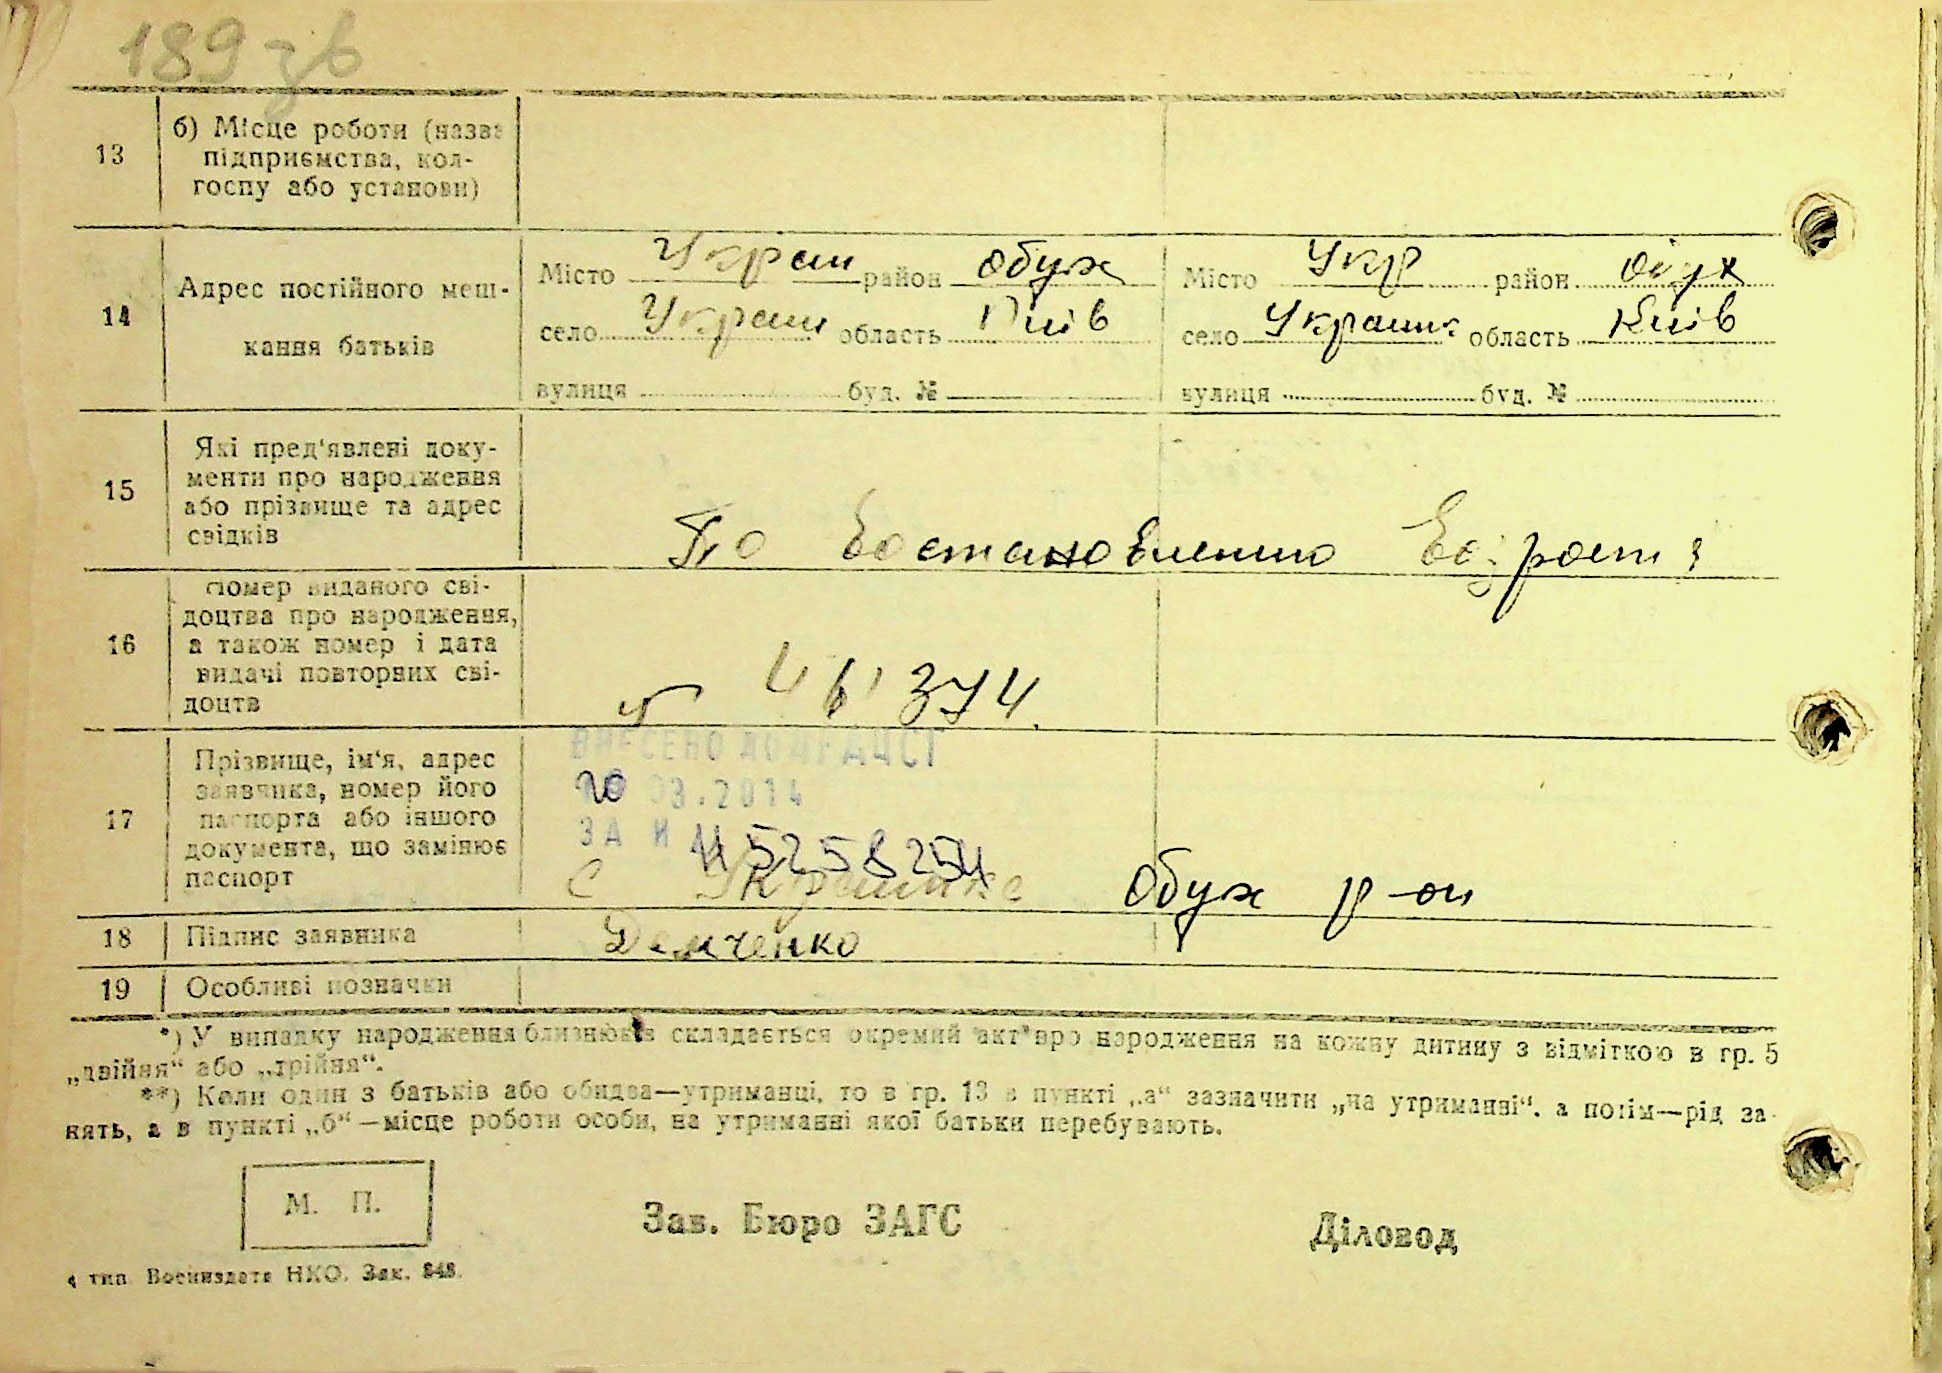 189 зв
13
б) Місце роботи (назва
підприємства, кол-
госпу або установи)
14
Адрес постійного меш-
кання батьків
Місто Украи район Обух
село Украи область Київ
вулиця буд. №
Місто Укр район Обух
село Украинк область Київ
вулиця буд. №
15
Які пред'явлені доку-
менти про народження
або прізвище та адрес
свідків
По востановлению
16
Номер виданого сві-
доцтва про народження,
а також номер і дата
видачі повторних сві-
доцтв
374
17
Прізвище, ім'я, адрес
заявника, номер його
паспорта або іншого
документа, що замінює
паспорт
ВНЕСЕНО ДО ДРАЦСГ
20 03.2014
ЗА №
с Украинка Обух р-он
18
Підпис заявника
Демченко
19
Особливі позначки
*) У випадку народження близнюків складається окремий акт про народження на кожну дитину з відміткою в гр. 5
„двійня“ або „трійня“.
**) Коли один з батьків або обидва—утриманці, то в гр. 13 в пункті „а“ зазначити „на утриманні“, а потім—рід за-
нять, а в пункті „б“—місце роботи особи, на утриманні якої батьки перебувають.
М. П.
Зав. Бюро ЗАГС
Діловод
4 тип. Воениздата НКО. Зак. 848.